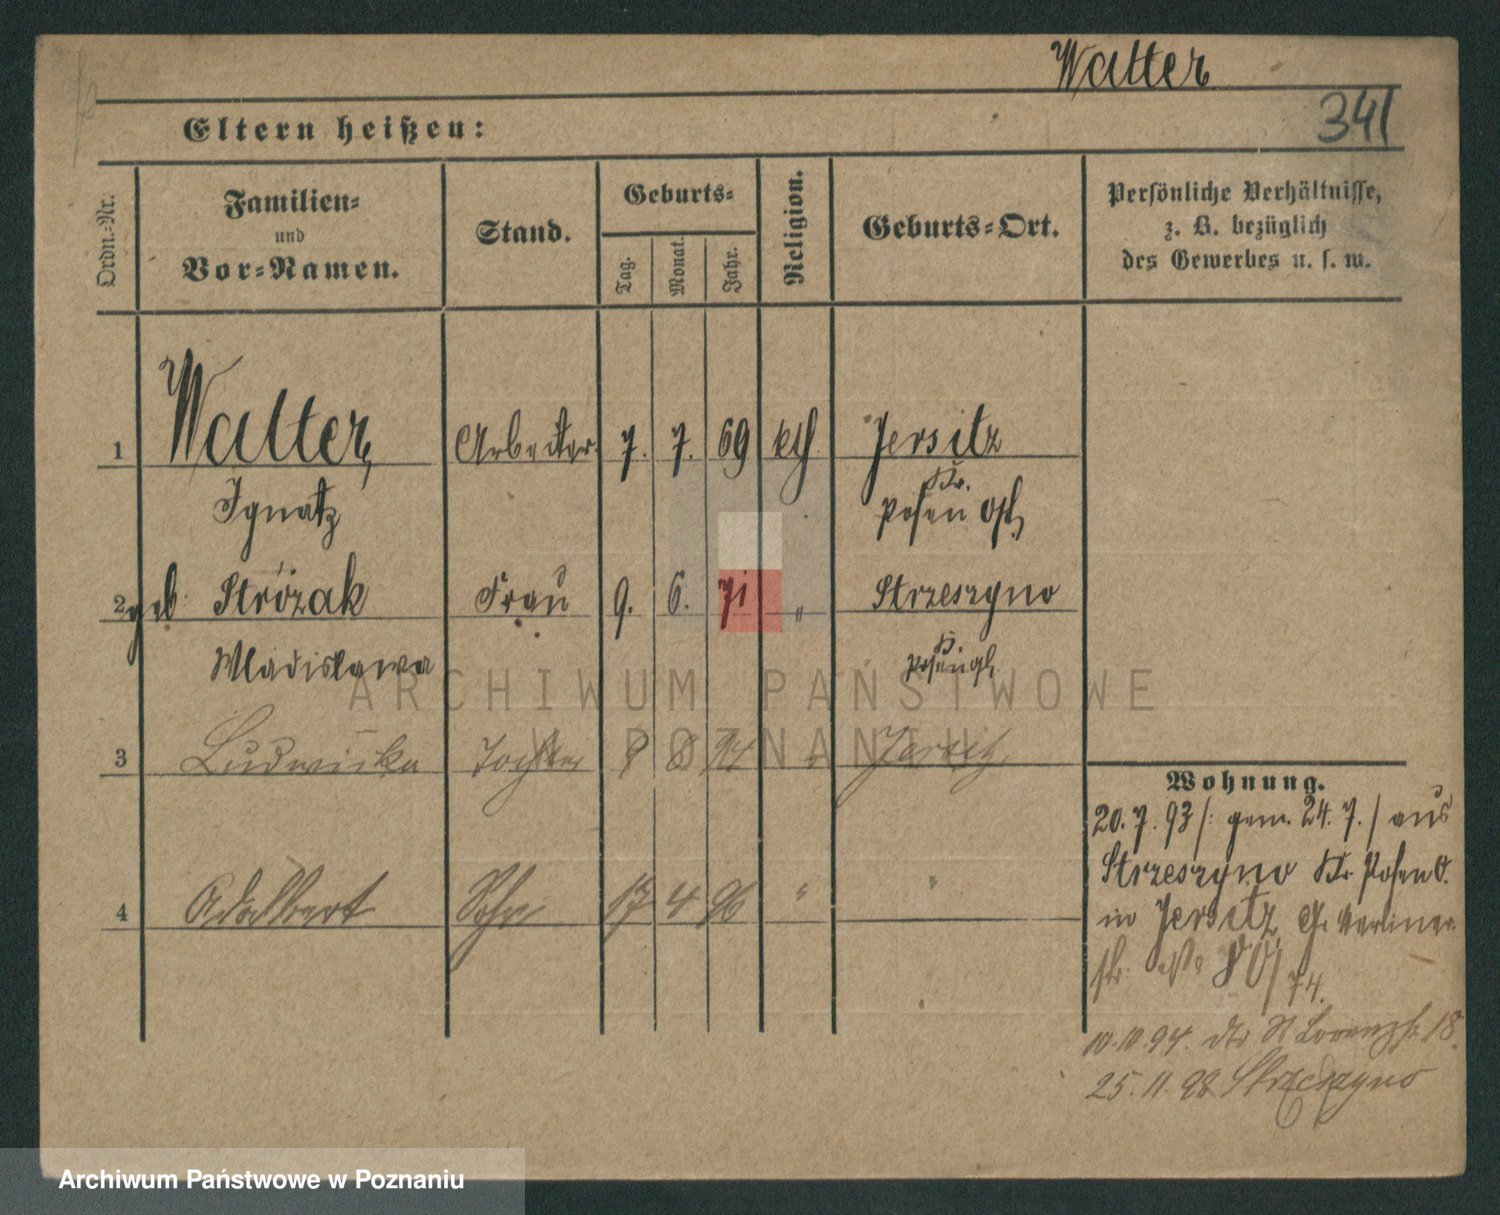 Walter
341
Eltern heißen:
Ordn.-Nr.
Familien-
und
Vor-Namen.
Stand.
Geburts-
Tag.
Monat.
Jahr.
Religion.
Geburts-Ort.
Persönliche Verhältnisse,
z. B. bezüglich
des Gewerbes u. s. w.
1 Walter, Arbeiter 7. 7. 69 kth Jersitz
Ignatz Kr. Posen Ost,
2 geb Strózak Frau 9. 6. 71 " Strzeszyno
Wladislawa Kr.
ARCHIWUM PAŃSTWOWE
W POZNANIU
3 Ludwicka Tochter 9 8 94 Jersitz
4 Adalbert Sohn 17 4 96 " "
Wohnung.
20. 7. 93 /: gem. 24. 7. / aus
Strzeszyno Kr. Posen O.
in Jersitz, Gr. Berliner
str. No 80/74.
10.10.94. dto St Lorenzstr 18.
25.11.98 Strzeszyno
Archiwum Państwowe w Poznaniu